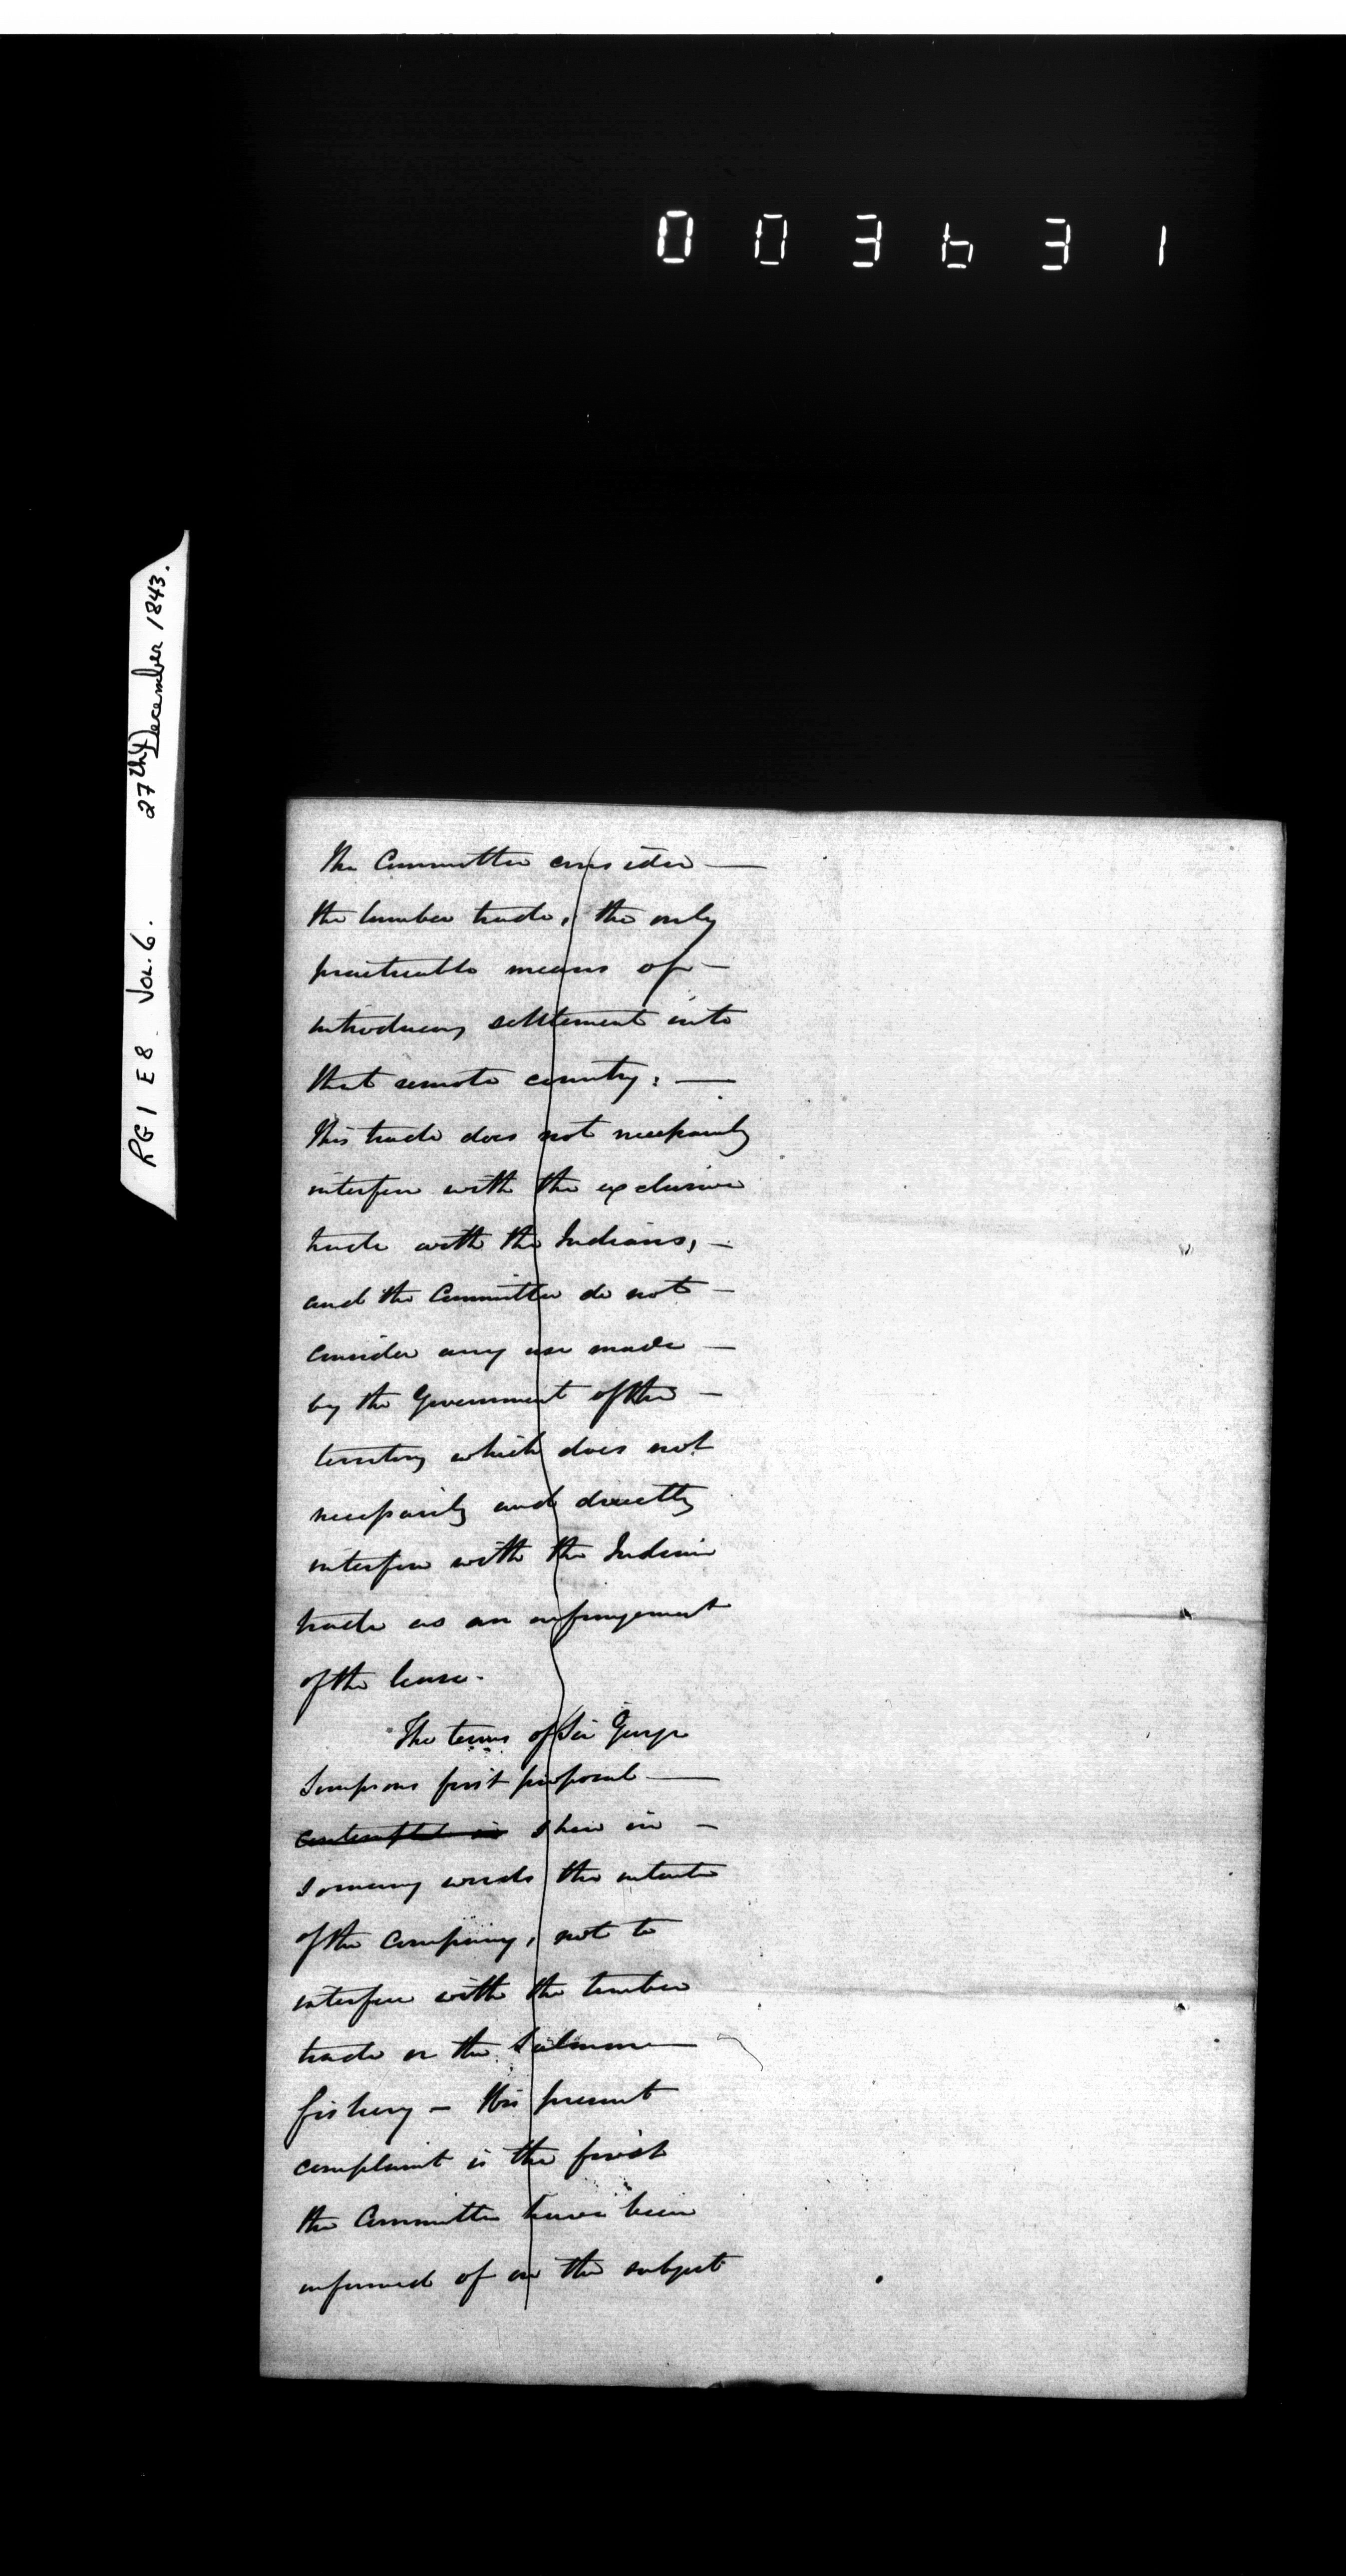 003631
RG1 E8 Vol. 6. 27th December 1843.
The Committee consider —
the lumber trade, the only
practicable means of —
introducing settlement into
that remote country: —
This trade does not necessarily
interfere with the exclusive
trade with the Indians, —
and the Committee do not —
consider any use made —
by the Government of the —
territory which does not
necessarily and directly
interfere with the Indian
trade as an infringement
of the lease.
The terms of Sir George
Simpsons first proposal —
contemplated in shew in —
so many words the intention
of the Company, not to
interfere with the timber
trade or the Salmon —
fishery — this present
complaint is the first
the Committee have been
informed of on the subject